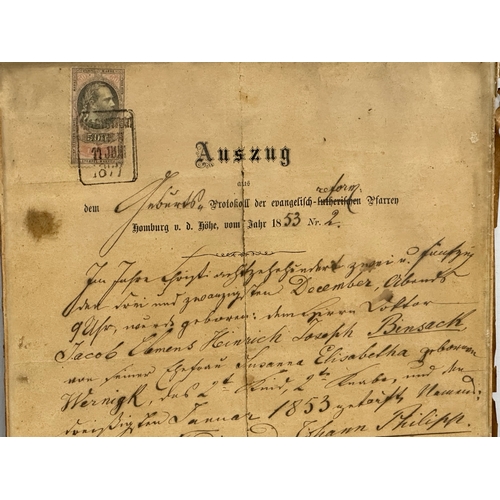 21 JUNI
1877
Auszug
aus
dem Geburts- Protokoll der evangelisch-lutherischen reform. Pfarrey
Homburg v. d. Höhe, vom Jahr 1853 Nr. 2.
Im Jahre Christi achtzehnhundert zwei u. fünfzig
den drei und zwanzigsten December, Abends
9 Uhr, wurde geboren: dem Herrn Doktor
Jacob Clemens Heinrich Joseph Bensach
von seiner Ehefrau Susanna Elisabetha geborene
Wernigk, das 2te Kind, 2te Knabe, und den
dreißigsten Januar 1853 getauft,
Johann Philipp.